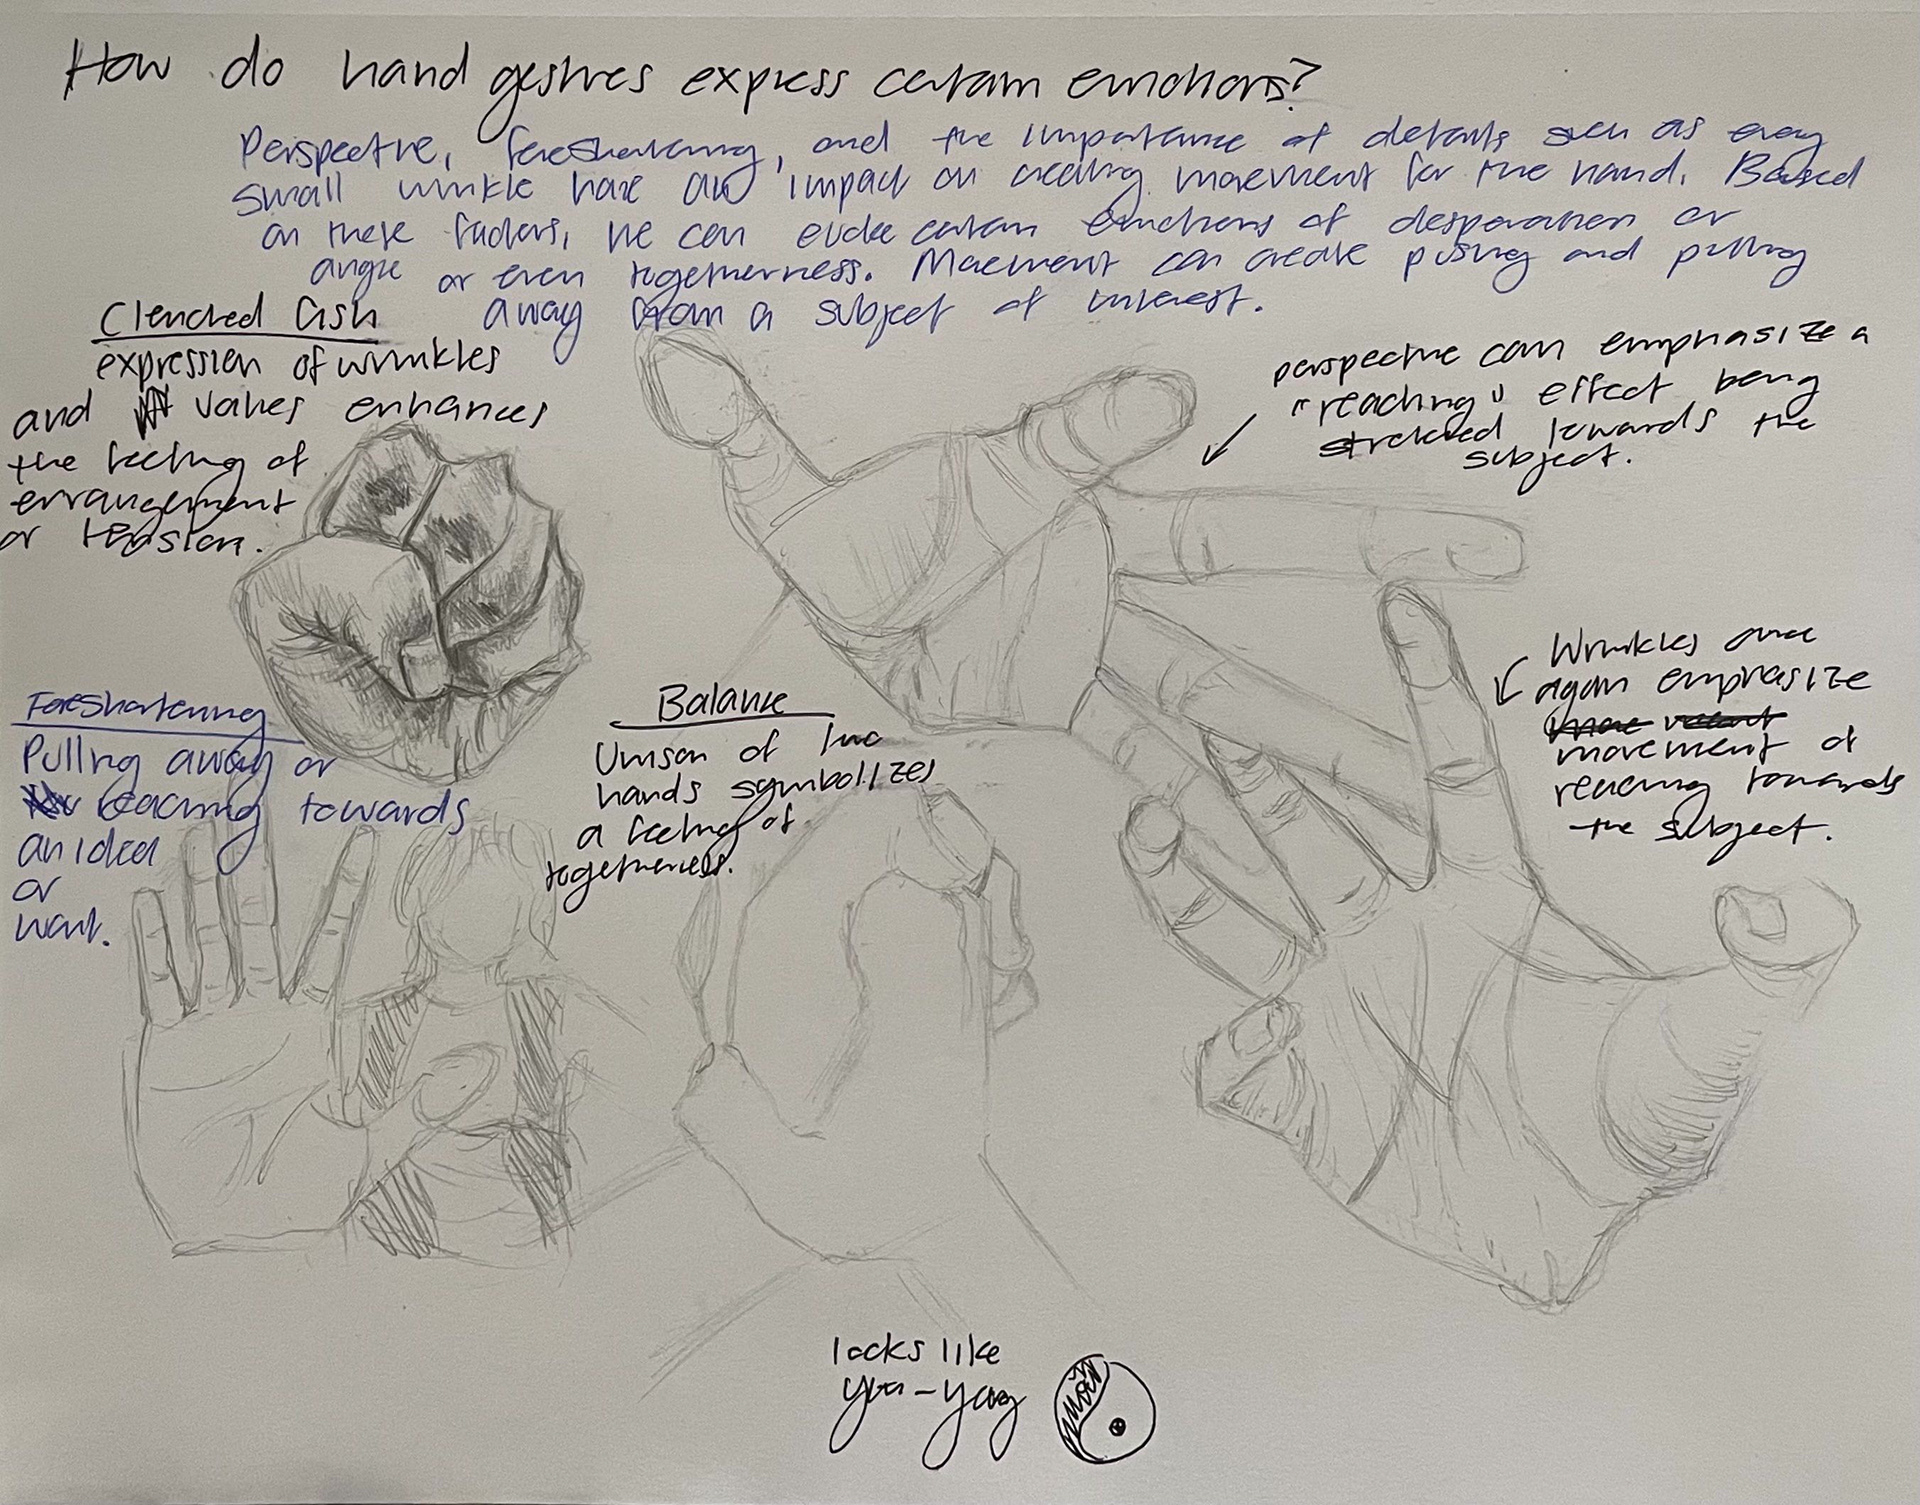 How do hand gestures express certain emotions?
Perspective, foreshortening, and the importance of details such as every
small wrinkle have an impact on creating movement for the hand. Based
on these factors, we can evoke certain emotions of desperation or
angle or even togetherness. Movement can create pushing and pulling
away from a subject of interest.
Clenched fish
expression of wrinkles
and values enhances
the feeling of
errangement
or tension.
perspective can emphasize a
"reaching" effect being
stretched towards the
subject.
Wrinkles once
again emphasize
movement of
reaching towards
the subject.
Foreshortening
Pulling away or
reaching towards
an idea
or
want.
Balance
Unison of two
hands symbolizes
a feeling of
togetherness.
looks like
yin-yang